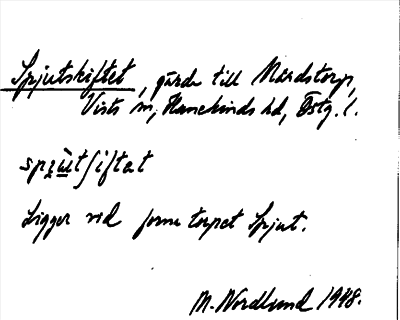 Spjutskiftet, gärde till Mårdstorp,
Vists sn, Hanekinds hd, Östg. l.
spɀ̀ʉtſiftet
Ligger vid forne torpet Spjut.
M. Nordlund 1948.